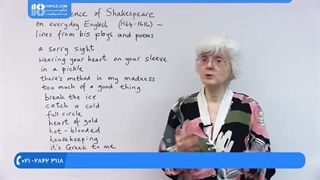 of Shakespeare
on everyday English (1564-1616) –
lines from his plays and poems
a sorry sight
wearing your heart on your sleeve
in a pickle
there's method in my madness
too much of a good thing
break the ice
catch a cold
full circle
heart of gold
hot-blooded
housekeeping
it's Greek to me
۰۲۱-۲۸۴۲ ۳۱۱۸